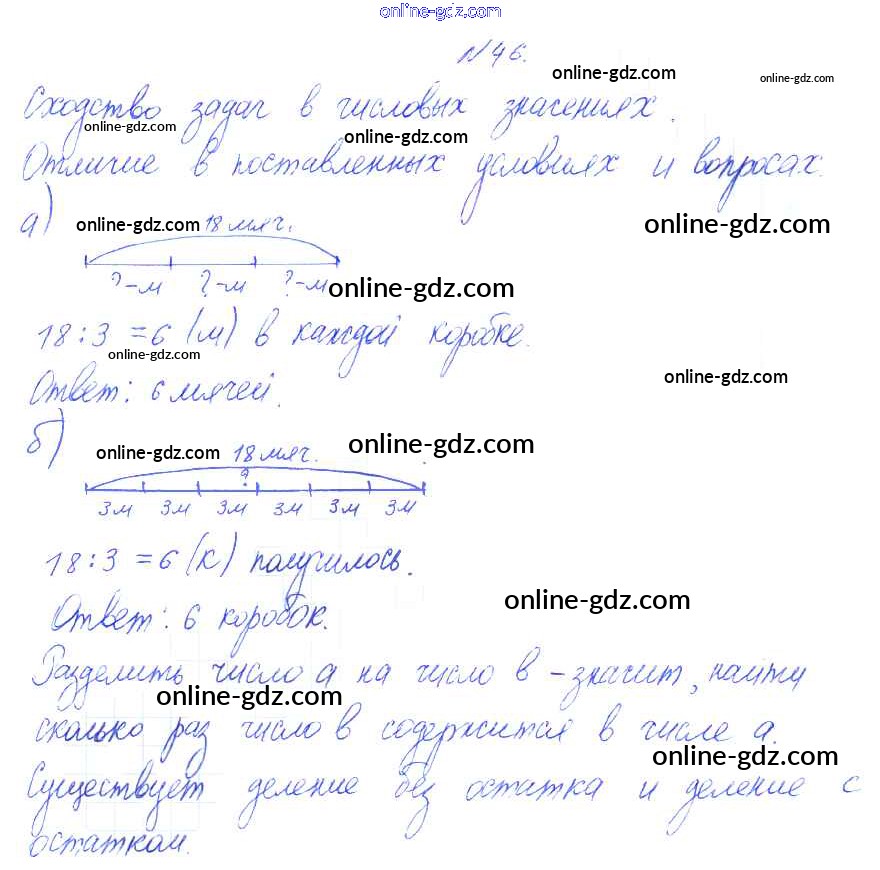 online-gdz.com
№46.
online-gdz.com
online-gdz.com
Сходство задач в числовых значениях.
online-gdz.com
online-gdz.com
Отличие в поставленных условиях и вопросах.
а)
online-gdz.com 18 мяч.
online-gdz.com
?-м ?-м ?-м
online-gdz.com
18:3=6 (м) в каждой коробке.
online-gdz.com
online-gdz.com
Ответ: 6 мячей.
б)
online-gdz.com 18 мяч.
online-gdz.com
?
3м 3м 3м 3м 3м 3м
18:3=6 (к) получилось.
online-gdz.com
Ответ: 6 коробок.
Разделить число а на число в -значит, найти
online-gdz.com
сколько раз число в содержится в числе а.
online-gdz.com
Существует деление без остатка и деление с
остатком.